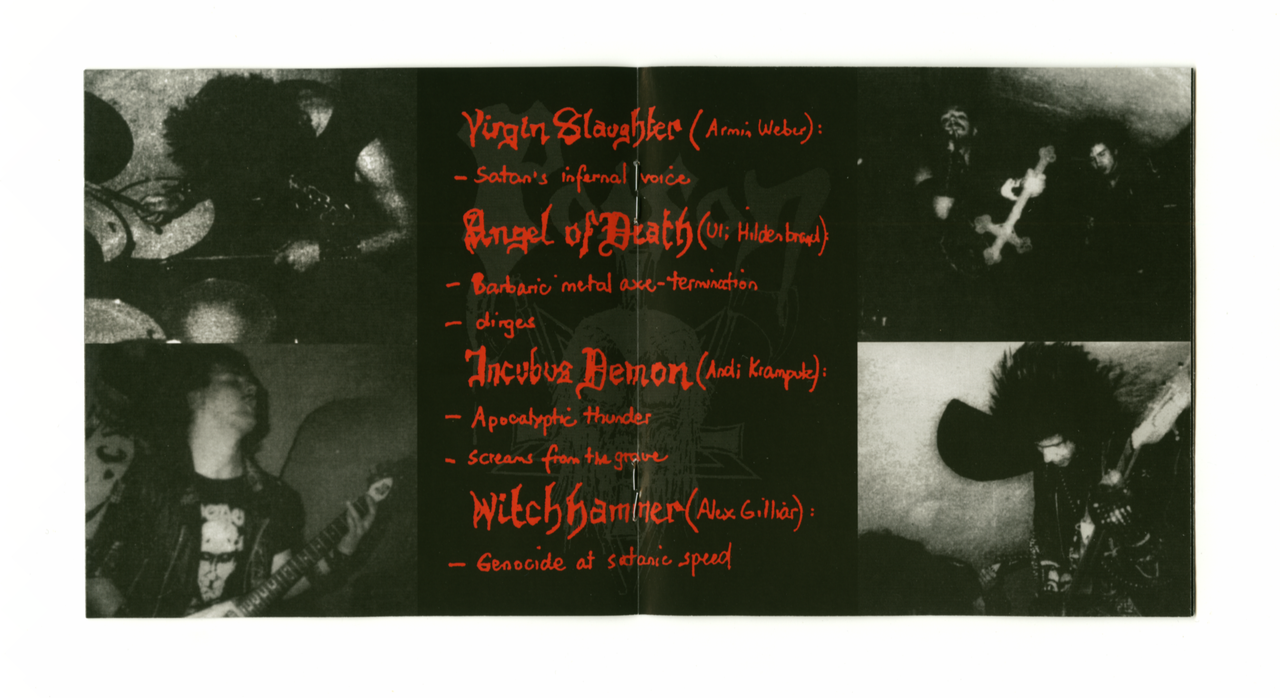 Virgin Slaughter (Armin Weber):
– Satan's infernal voice
Angel of Death (Uli Hildenbrand):
– Barbaric metal axe-termination
– dirges
Incubus Demon (Andi Krampulz):
– Apocalyptic thunder
– screams from the grave
Witchhammer (Alex Gilliár):
– Genocide at satanic speed
Poison